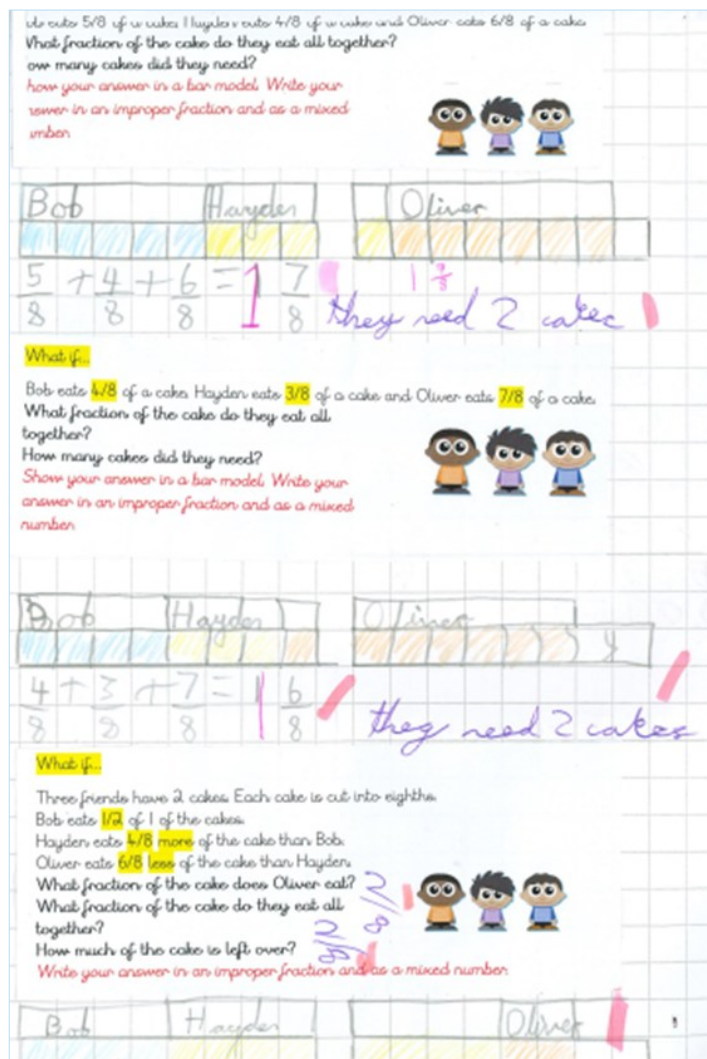 ob eats 5/8 of a cake, Hayden eats 4/8 of a cake and Oliver eats 6/8 of a cake
What fraction of the cake do they eat all together?
ow many cakes did they need?
how your answer in a bar model. Write your
nswer in an improper fraction and as a mixed
umber.
Bob Hayden Oliver
5/8 + 4/8 + 6/8 = 1 7/8 1 7/8
they need 2 cakes
What if...
Bob eats 4/8 of a cake, Hayden eats 3/8 of a cake and Oliver eats 7/8 of a cake.
What fraction of the cake do they eat all
together?
How many cakes did they need?
Show your answer in a bar model. Write your
answer in an improper fraction and as a mixed
number.
Bob Hayden Oliver
4/8 + 3/8 + 7/8 = 1 6/8 they need 2 cakes
What if...
Three friends have 2 cakes. Each cake is cut into eighths.
Bob eats 1/2 of 1 of the cakes.
Hayden eats 4/8 more of the cake than Bob.
Oliver eats 6/8 less of the cake than Hayden.
What fraction of the cake does Oliver eat? 2/8
What fraction of the cake do they eat all
together?
How much of the cake is left over? 2/8
Write your answer in an improper fraction and as a mixed number.
Bob Hayden Oliver